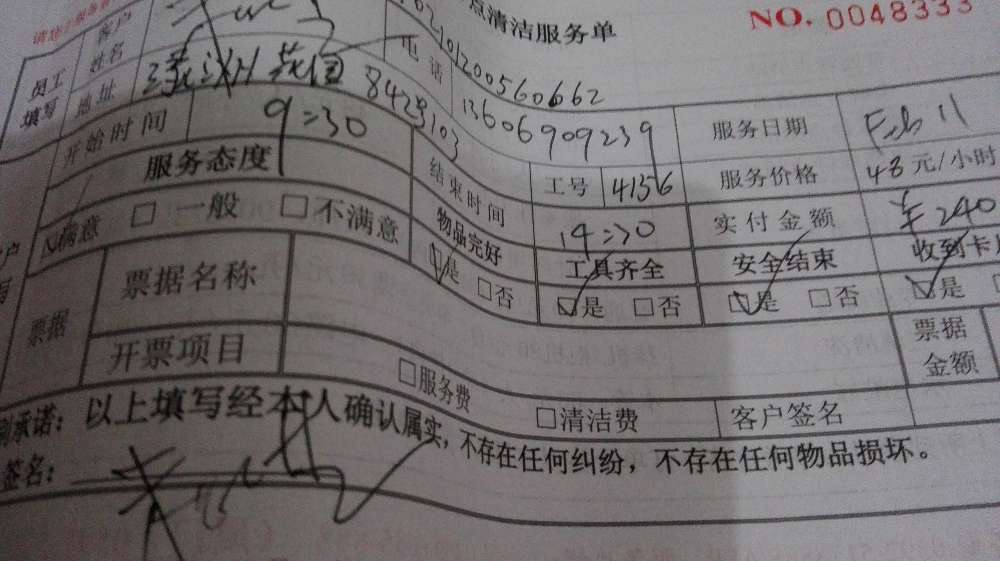 点清洁服务单
NO. 0048333
员工填写
客户姓名
电话
13606909239
服务日期
Feb 11
地址
84259103
开始时间
9:30
结束时间
14:30
工号
4156
服务价格
48元/小时
实付金额
¥240
服务态度
物品完好
工具齐全
安全结束
收到卡
满意 □一般 □不满意
☑是 □否
☑是 □否
☑是 □否
☑是
票据
票据名称
票据金额
开票项目
□服务费
□清洁费
客户签名
承诺：以上填写经本人确认属实，不存在任何纠纷，不存在任何物品损坏。
签名：